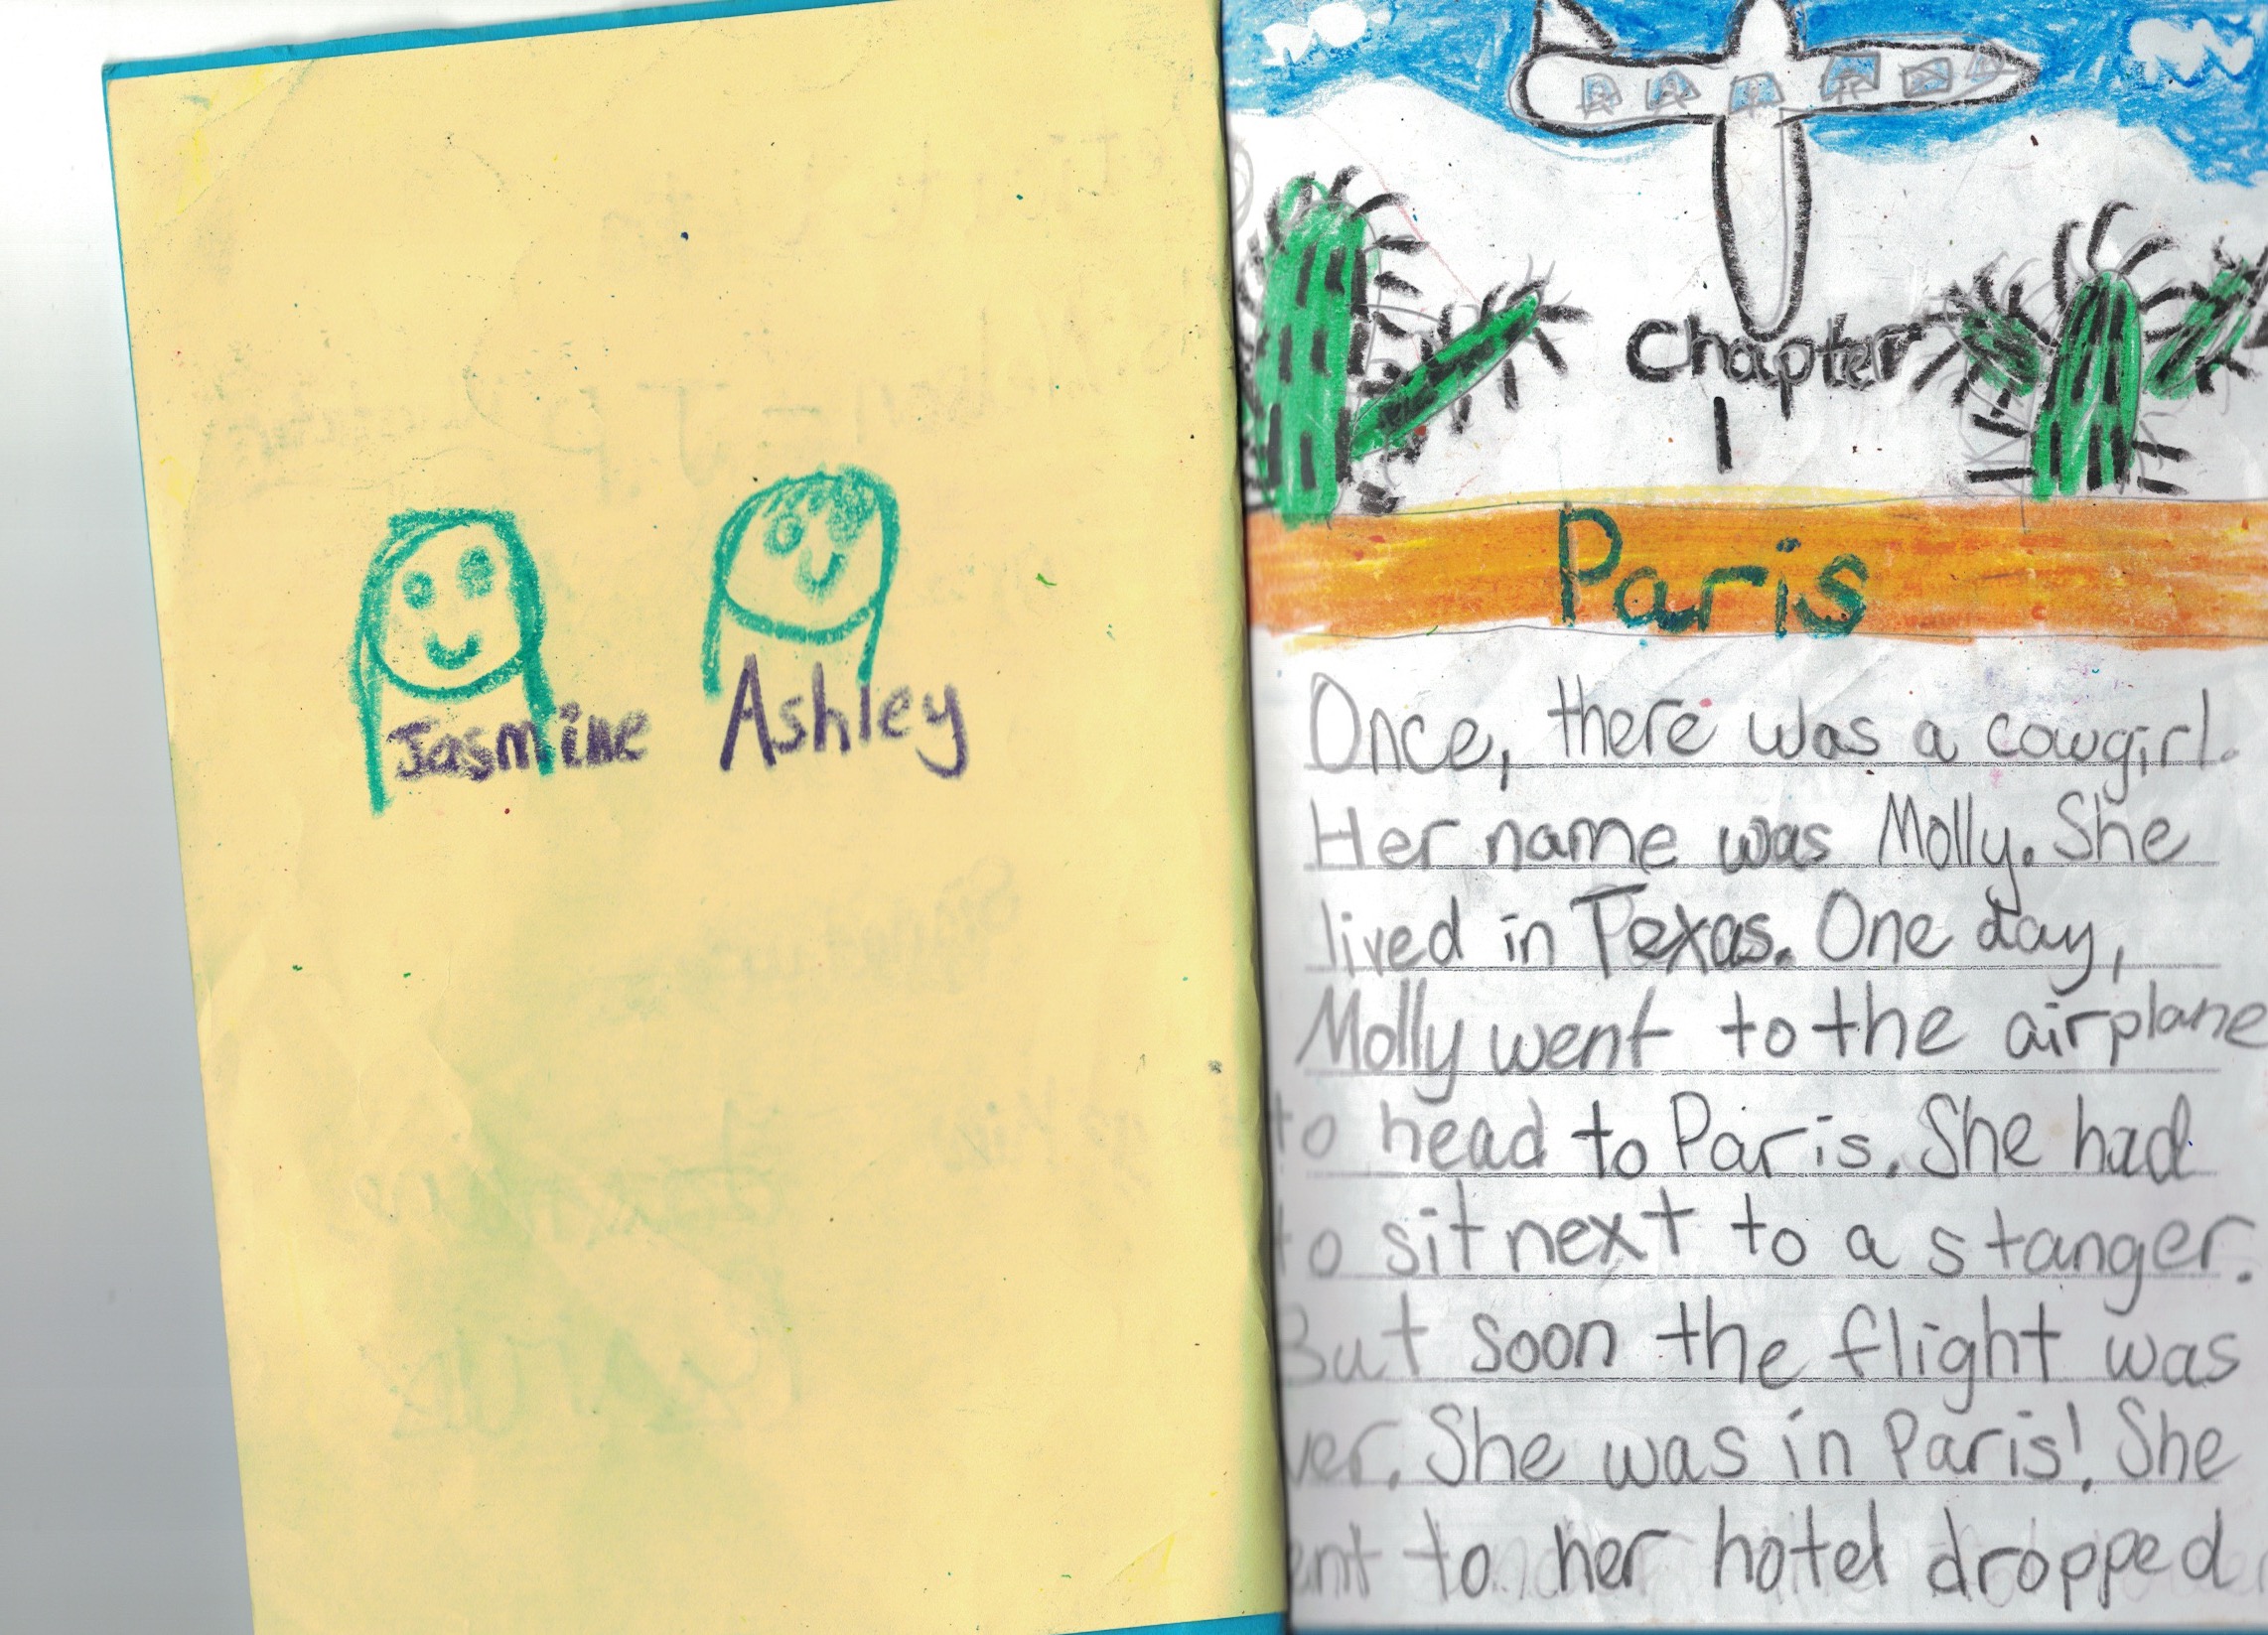 Jasmine
Ashley
Chapter
1
Paris
Once, there was a cowgirl.
Her name was Molly. She
lived in Texas. One day,
Molly went to the airplane
to head to Paris. She had
to sit next to a stanger.
But soon the flight was
ver. She was in Paris! She
ent to her hotel dropped